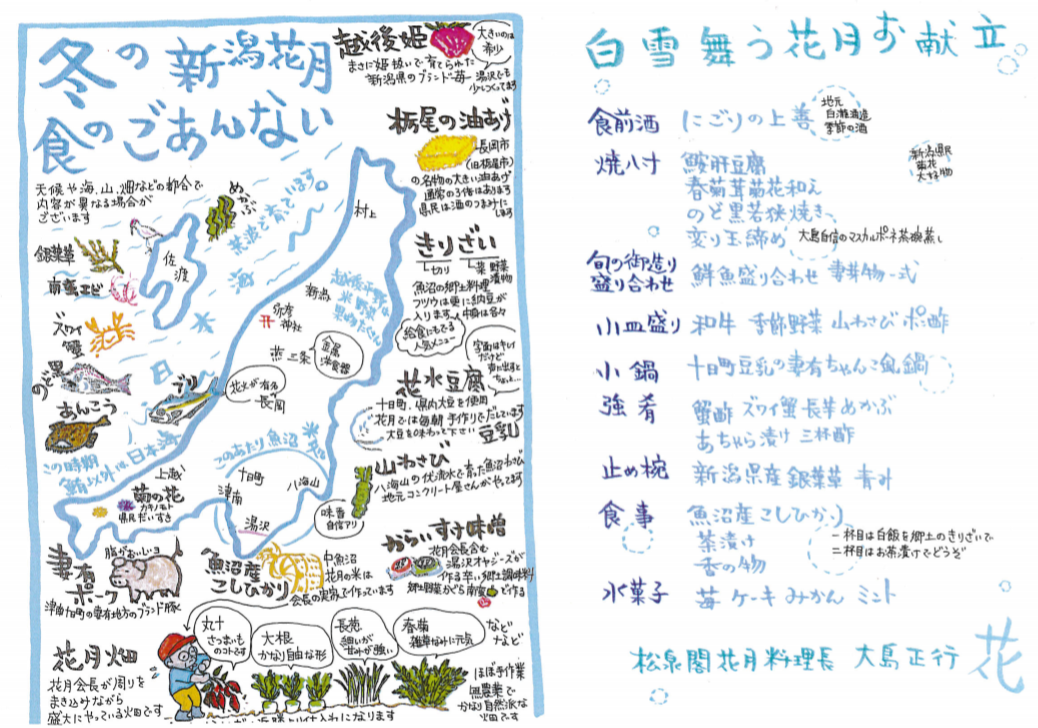 冬の新潟花月
食のごあんない
天候や海、山、畑などの都合で
内容が異なる場合が
ございます
越後姫
大きいのは
希少
まさに姫扱いで育てられた
新潟県のブランド苺
湯沢でも
少しつくってます
栃尾の油あげ
長岡市
(旧栃尾市)
の名物の大きい油あげ
通常の3倍はあります
県民は酒のつまみに
します
きりざい
切り
菜 野菜
漬物
魚沼の郷土料理
フツウは更に納豆が
入ります
中身は各々
給食にもでる
人気メニュー
字面はキレイ
だけど
声に出すと
花水豆腐
十日町、県内大豆を使用
花月では毎朝手作りでだしています
大豆を味わって下さい
豆乳
山わさび
八海山の伏流水で育った魚沼わさび
地元コンクリート屋さんがやってます
味香
自信アリ
からいすけ味噌
花月会長含む
湯沢オヤジーズが
作る辛い郷土調味料
郷土野菜かぐら南蛮で作る
めかぶ
荒波で育っています。
佐渡
銀葉草
南蛮エビ
ズワイ
蟹
のど黒
あんこう
ブリ
日本海
この時期
鮪以外は日本海
村上
新潟
弥彦
神社
越後平野
米 野菜
果物たくさん
燕三条
金属
洋食器
花火が有名
長岡
このあたり魚沼
上越
十日町
津南
八海山
湯沢
菊の花
カキノモト
県民だいすき
妻有
ポーク
脂がおいしいヨ
津南十日町の妻有地方のブランド豚
魚沼産
こしひかり
中魚沼
花月の米は
会長の実家で作っています
花月畑
花月会長が周りを
まき込みながら
盛大にやっている畑です
丸十
さつまいも
のコトです
大根
かなり自由な形
長葱
細いが
甘みが強い
春菊
雑草なみに元気
などなど
ほぼ手作業
無農薬で
かなり自然派な
畑です
白雪舞う花月お献立
食前酒 にごりの上善
地元
白瀧酒造
季節の酒
焼八寸 鮟肝豆腐
春菊茸菊花和え
のど黒若狭焼き、
変り玉締め 大島自信のマスカルポーネ茶碗蒸し
新潟県民
菊花
大好物
旬の御造り
盛り合わせ 鮮魚盛り合わせ 妻芽物一式
小皿盛り 和牛 季節野菜 山わさび ポン酢
小鍋 十日町豆乳の妻有ちゃんこ風鍋
強肴 蟹酢 ズワイ蟹 長芋 めかぶ
あちゃら漬け 三杯酢
止め椀 新潟県産銀葉草 青み
食事 魚沼産こしひかり
茶漬け
香の物
一杯目は白飯を郷土のきりざいで
二杯目はお茶漬けでどうぞ
水菓子 苺 ケーキ みかん ミント
松泉閣花月料理長 大島正行
花